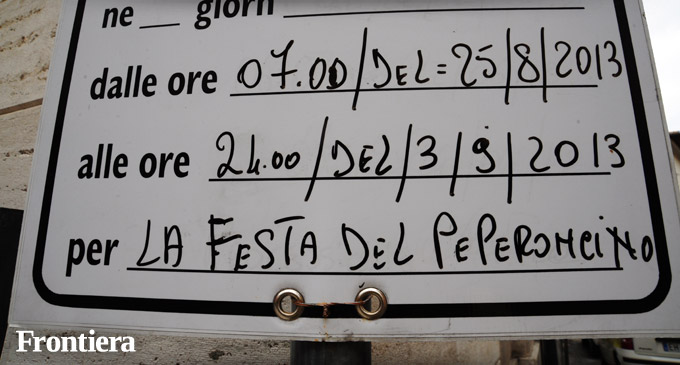 ne __ giorn
dalle ore 07.00/DEL=25/8/2013
alle ore 24.00/DEL/3/9/2013
per LA FESTA DEL PEPERONCINO
Frontiera